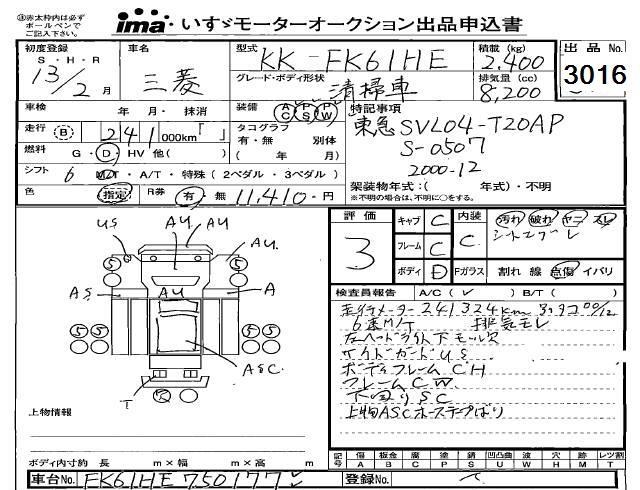 ㊟赤太枠内は必ず
ボールペンで
ご記入下さい。
ima いすゞモーターオークション出品申込書
初度登録 車名 型式 KK-FK61HE 積載(kg) 2,400 出品No.
S・H・R 13/2月 三菱 グレード・ボディ形状 清掃車 排気量(cc) 8,200 3016
車検 年 月・ 抹消 装備 AC PS AW PW 特記事項
走行 (B) 241 000km「 」 タコグラフ 有・無 別体 東急 SVL04-T20AP
燃料 G・D・HV 他( ) ( 年 月) S-0507
シフト 6 M/T・A/T・特殊(2ペダル・3ペダル) 2000-12
色 指定 R券 有・無 11,410-円 架装物年式:( 年式)・不明
※不明の場合は、不明に○をする。
評価 キャブ C 内装 汚れ 破れ ヤニ スレ
3 フレーム C C シートスグレ
ボディ D Fガラス 割れ 線 点傷 イバリ
検査員報告 A/C(レ) B/T( )
走行メーター241,324km
6速M/T 排気モレ
左ヘッドライト下モール欠
サイドガードUS
ボディフレームCH
フレームCW
下回りSC
上物ASCホーステープばり
US AU AU AU.
AS AU A
ASC
T
5 5
5 5 5 5
上物情報
ボディ内寸約 長 m×幅 m×高 m
記号 傷 板金 腐 塗 錆 凹凸曲 波 穴 跡 レツ割
A B C P S U W H M T
車台No. FK61HE750177 登録No.